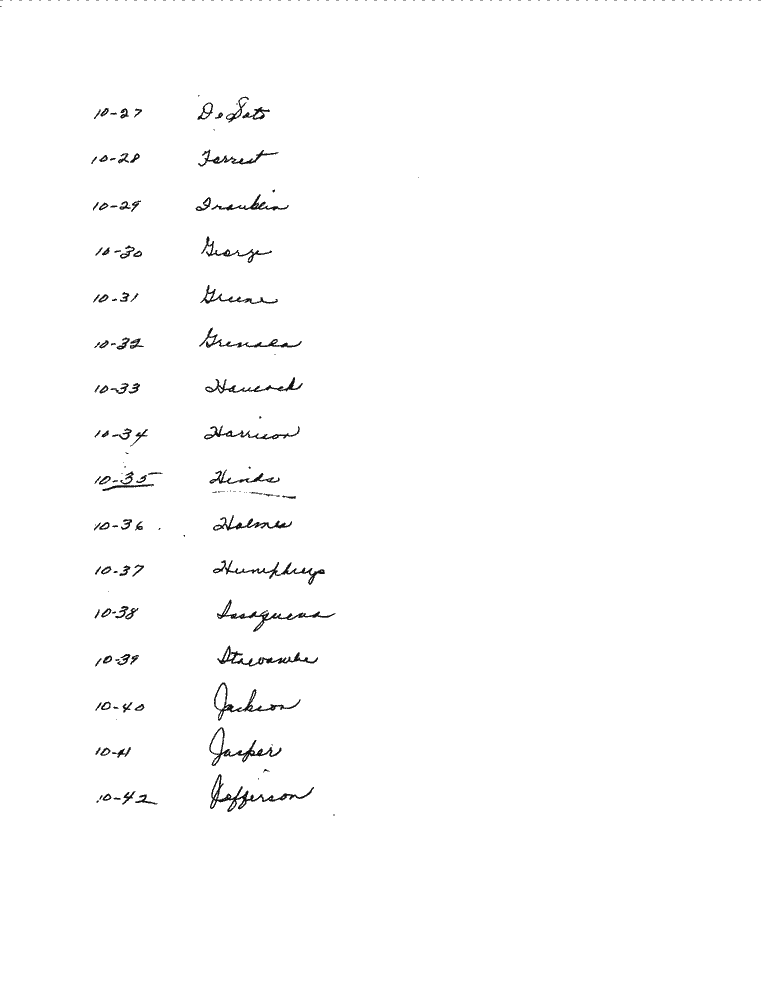 10-27 DeSoto
10-28 Forrest
10-29 Franklin
10-30 George
10-31 Greene
10-32 Grenada
10-33 Hancock
10-34 Harrison
10-35 Hinds
10-36 Holmes
10-37 Humphreys
10-38 Issaquena
10-39 Itawamba
10-40 Jackson
10-41 Jasper
10-42 Jefferson